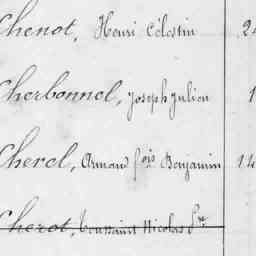 Chenot, Henri Célestin 24
Cherbonnel, Joseph Julien 1
Cherel, Armand fois Benjamin 14
Cherot, Toussaint Nicolas